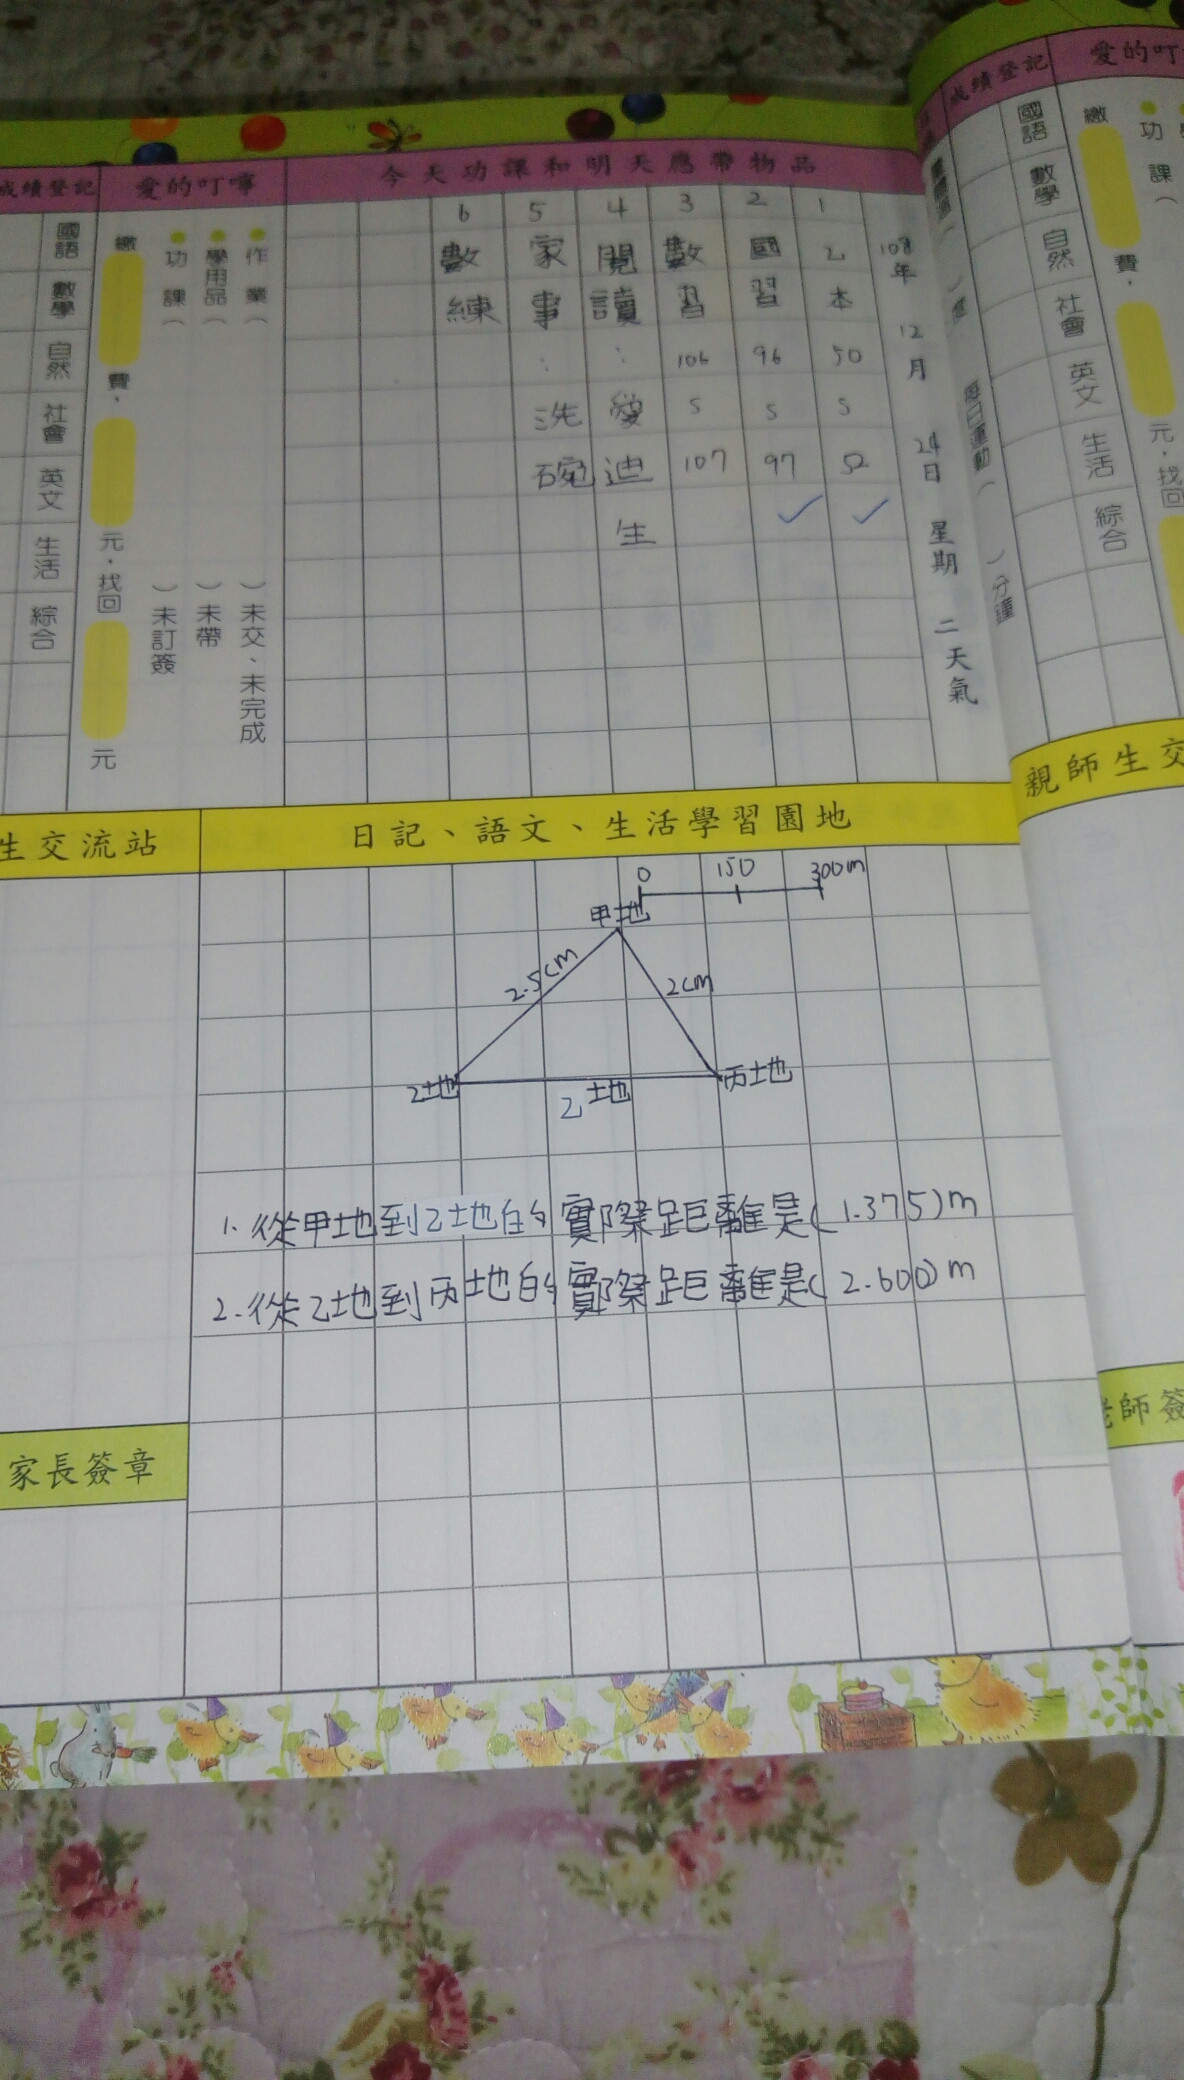 今天功課和明天應帶物品
108年 12月 24日 星期二 天氣
1 乙本 50 S 52
2 國習 96 S 97
3 數習 106 S 107
4 閱讀：愛迪生
5 家事：洗碗
6 數練
愛的叮嚀
作業（ ）未交、未完成
學用品（ ）未帶
功課（ ）未訂簽
繳 費, 元,找回 元
成績登記
國語
數學
自然
社會
英文
生活
綜合
日記、語文、生活學習園地
0 150 300m
甲地
2.5cm 2cm
乙地 丙地
乙地
1.從甲地到乙地的實際距離是(1.375)m
2.從乙地到丙地的實際距離是(2.600)m
生交流站
家長簽章
成績登記
愛的叮
國語
數學
自然
社會
英文
生活
綜合
每日運動（ ）分鐘
功課（
繳 費, 元,找回
親師生交
師簽